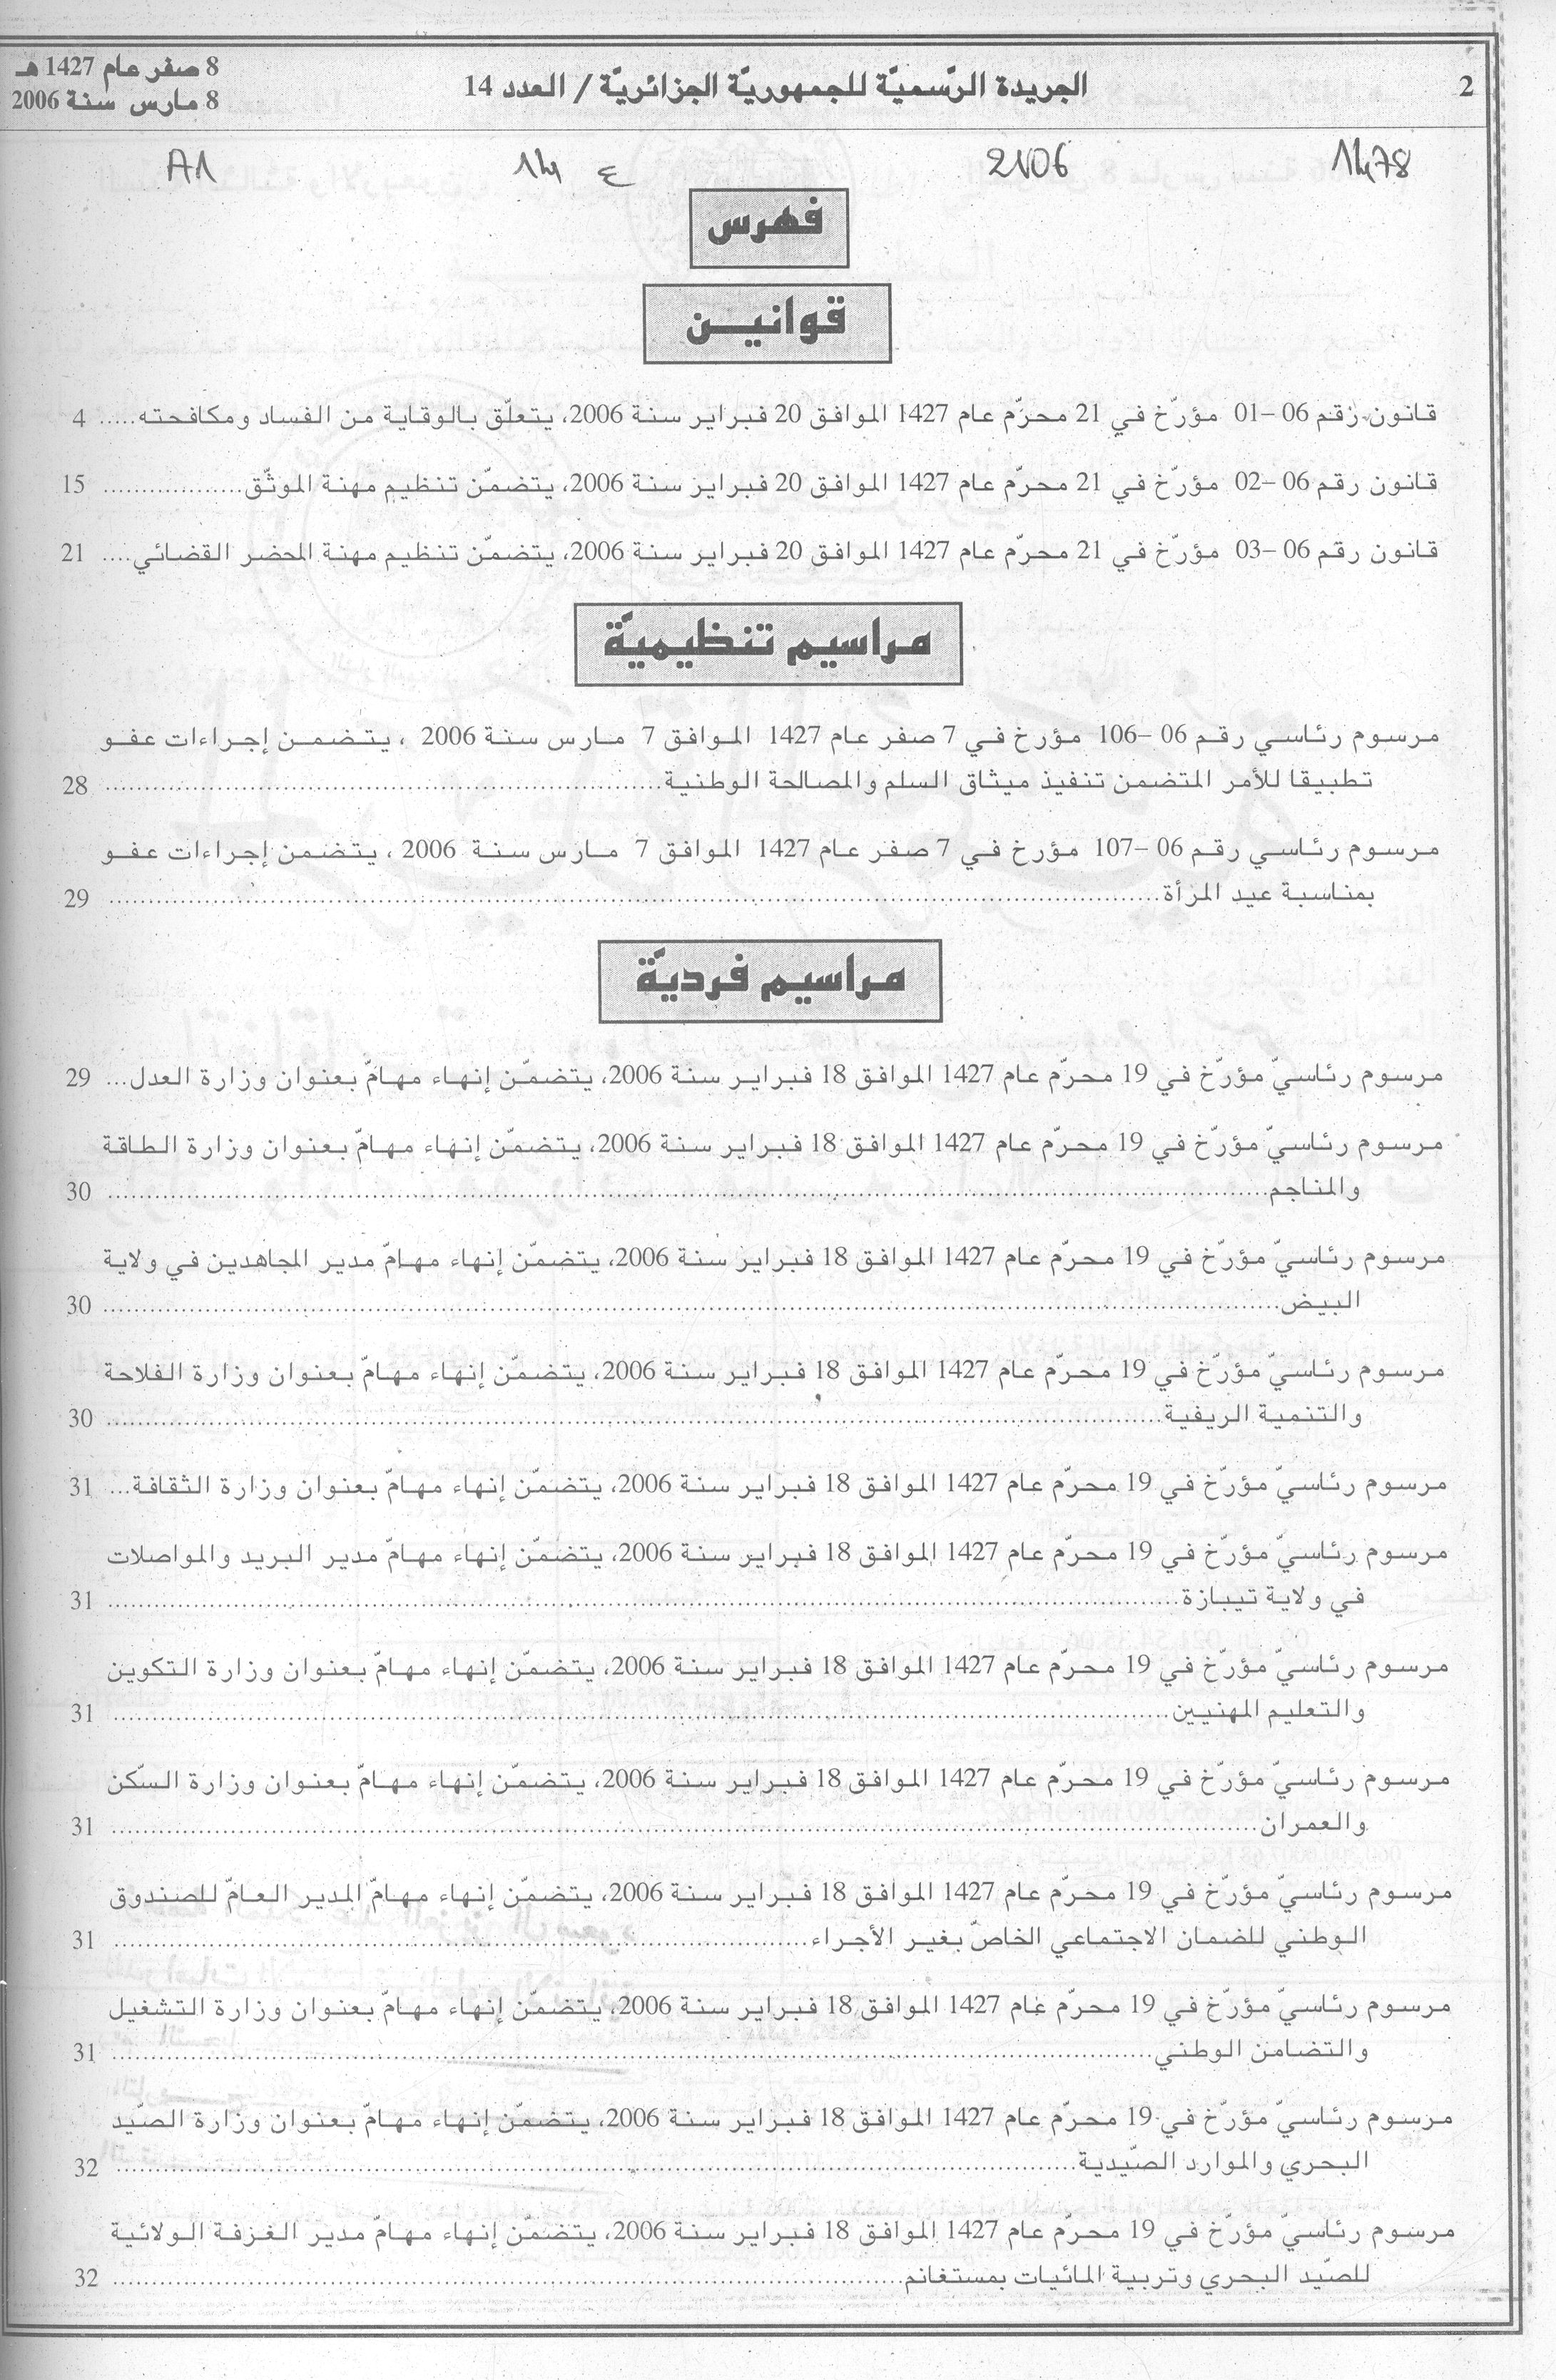 2
الجريدة الرّسميّة للجمهوريّة الجزائريّة / العدد 14
8 صفر عام 1427 هـ
8 مارس سنة 2006
1478 2006 ع 14 A1
فهرس
قوانيـن
قانون رقم 06 –01 مؤرّخ في 21 محرّم عام 1427 الموافق 20 فبراير سنة 2006، يتعلّق بالوقاية من الفساد ومكافحته..... 4
قانون رقم 06 –02 مؤرّخ في 21 محرّم عام 1427 الموافق 20 فبراير سنة 2006، يتضمّن تنظيم مهنة الموثّق.................. 15
قانون رقم 06 –03 مؤرّخ في 21 محرّم عام 1427 الموافق 20 فبراير سنة 2006، يتضمّن تنظيم مهنة المحضر القضائي.... 21
مراسيم تنظيميّة
مرسوم رئاسي رقم 06 –106 مؤرخ في 7 صفر عام 1427 الموافق 7 مارس سنة 2006 ، يتضمن إجراءات عفو
تطبيقا للأمر المتضمن تنفيذ ميثاق السلم والمصالحة الوطنية........................................ 28
مرسوم رئاسي رقم 06 –107 مؤرخ في 7 صفر عام 1427 الموافق 7 مارس سنة 2006 ، يتضمن إجراءات عفو
بمناسبة عيد المرأة........................................ 29
مراسيم فرديّة
مرسوم رئاسيّ مؤرّخ في 19 محرّم عام 1427 الموافق 18 فبراير سنة 2006، يتضمّن إنهاء مهامّ بعنوان وزارة العدل... 29
مرسوم رئاسيّ مؤرّخ في 19 محرّم عام 1427 الموافق 18 فبراير سنة 2006، يتضمّن إنهاء مهامّ بعنوان وزارة الطاقة
والمناجم........................................ 30
مرسوم رئاسيّ مؤرّخ في 19 محرّم عام 1427 الموافق 18 فبراير سنة 2006، يتضمّن إنهاء مهامّ مدير المجاهدين في ولاية
البيض........................................ 30
مرسوم رئاسيّ مؤرّخ في 19 محرّم عام 1427 الموافق 18 فبراير سنة 2006، يتضمّن إنهاء مهامّ بعنوان وزارة الفلاحة
والتنمية الريفية........................................ 30
مرسوم رئاسيّ مؤرّخ في 19 محرّم عام 1427 الموافق 18 فبراير سنة 2006، يتضمّن إنهاء مهامّ بعنوان وزارة الثقافة... 31
مرسوم رئاسيّ مؤرّخ في 19 محرّم عام 1427 الموافق 18 فبراير سنة 2006، يتضمّن إنهاء مهامّ مدير البريد والمواصلات
في ولاية تيبازة........................................ 31
مرسوم رئاسيّ مؤرّخ في 19 محرّم عام 1427 الموافق 18 فبراير سنة 2006، يتضمّن إنهاء مهامّ بعنوان وزارة التكوين
والتعليم المهنيين........................................ 31
مرسوم رئاسيّ مؤرّخ في 19 محرّم عام 1427 الموافق 18 فبراير سنة 2006، يتضمّن إنهاء مهامّ بعنوان وزارة السّكن
والعمران........................................ 31
مرسوم رئاسيّ مؤرّخ في 19 محرّم عام 1427 الموافق 18 فبراير سنة 2006، يتضمّن إنهاء مهامّ المدير العامّ للصندوق
الوطني للضمان الاجتماعي الخاصّ بغير الأجراء........................................ 31
مرسوم رئاسيّ مؤرّخ في 19 محرّم عام 1427 الموافق 18 فبراير سنة 2006، يتضمّن إنهاء مهامّ بعنوان وزارة التشغيل
والتضامن الوطني........................................ 31
مرسوم رئاسيّ مؤرّخ في 19 محرّم عام 1427 الموافق 18 فبراير سنة 2006، يتضمّن إنهاء مهامّ بعنوان وزارة الصّيد
البحري والموارد الصّيدية........................................ 32
مرسوم رئاسيّ مؤرّخ في 19 محرّم عام 1427 الموافق 18 فبراير سنة 2006، يتضمّن إنهاء مهامّ مدير الغرفة الولائية
للصّيد البحري وتربية المائيات بمستغانم........................................ 32